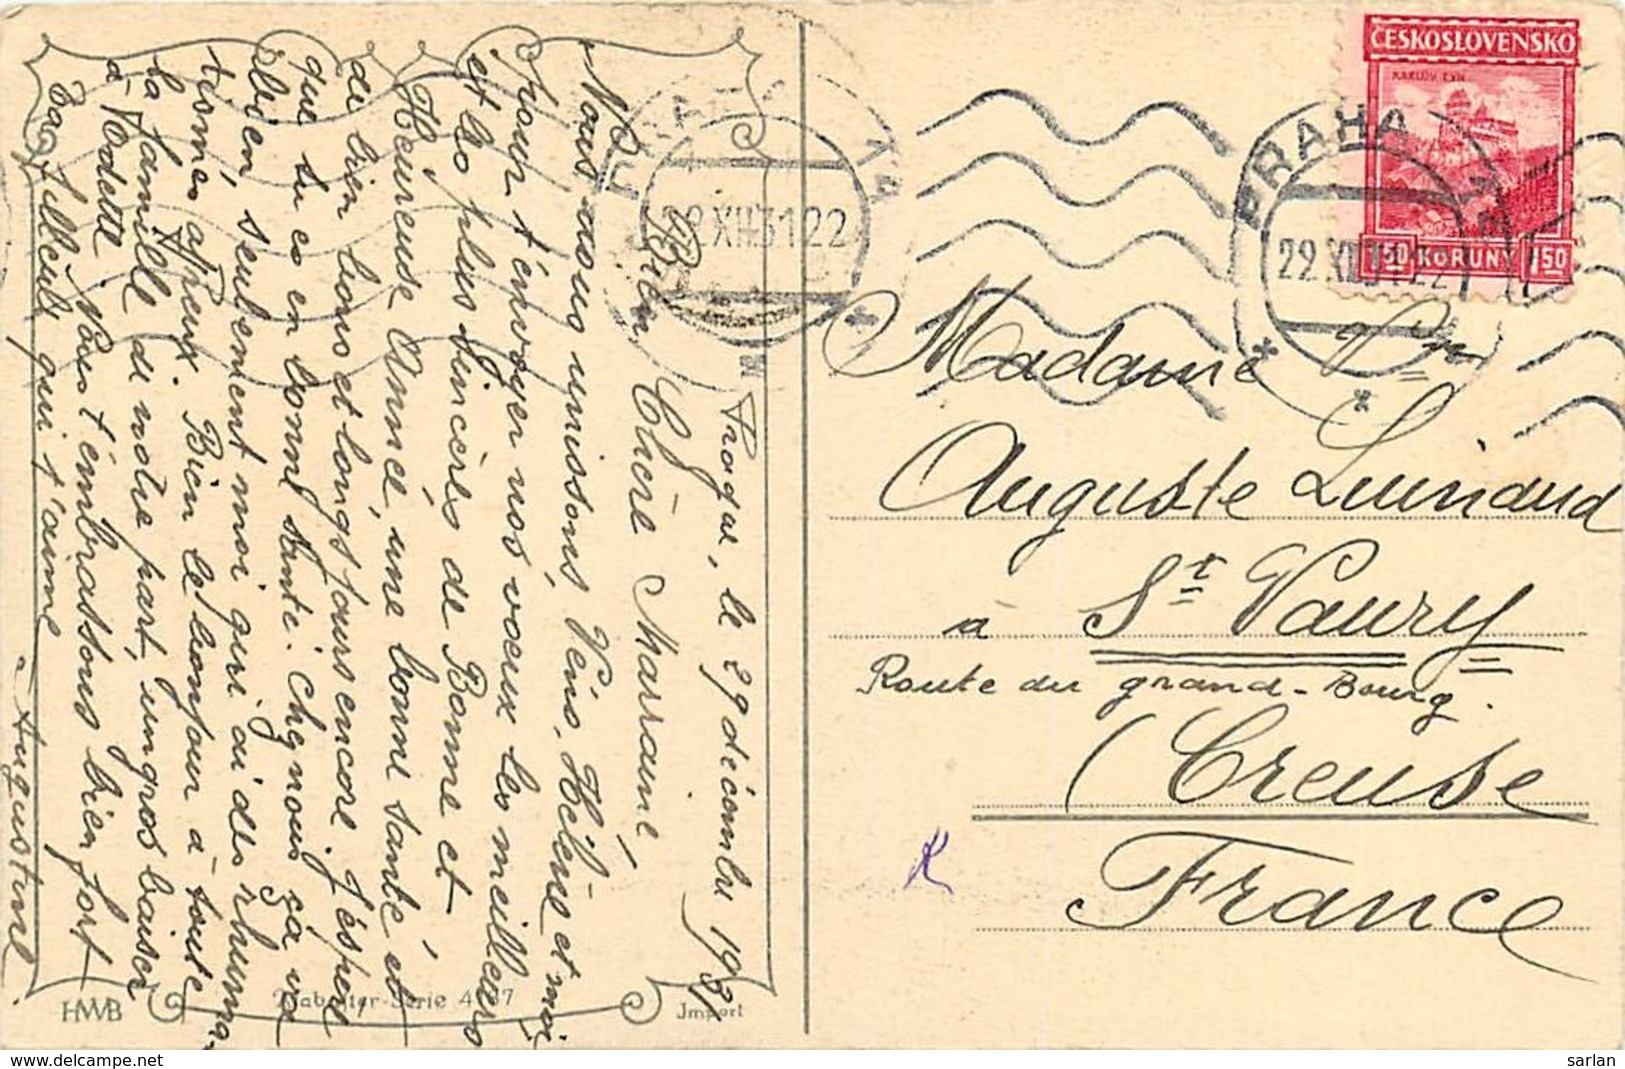 Prague, le 29 décembre 1931
Bien Chère Marraine,
Nous nous unissons, Véno, Hélène et moi
pour t'envoyer nos voeux les meilleurs
et les plus sincères de Bonne et
Heureuse Année, une bonne santé et
de bien bons et longs jours encore. J'espère
que tu es en bonne santé. Chez nous ça va
bien, seulement moi qui ai des rhuma-
tismes affreux. Bien le bonjour à toute
la famille de notre part, un gros baiser
à Odette. Nous t'embrassons bien fort
Ta filleule qui t'aime
Augustine.
HWB
Serie 4187
Import
PRAHA
22.XII.31.22
PRAHA
22.XII.31.22
ČESKOSLOVENSKO
KARLŮV TÝN
1.50 KORUNY 1.50
Madame Vve
Auguste
à St Vaury
Route du grand-Bourg.
(Creuse
France
delcampe.net
sarlan